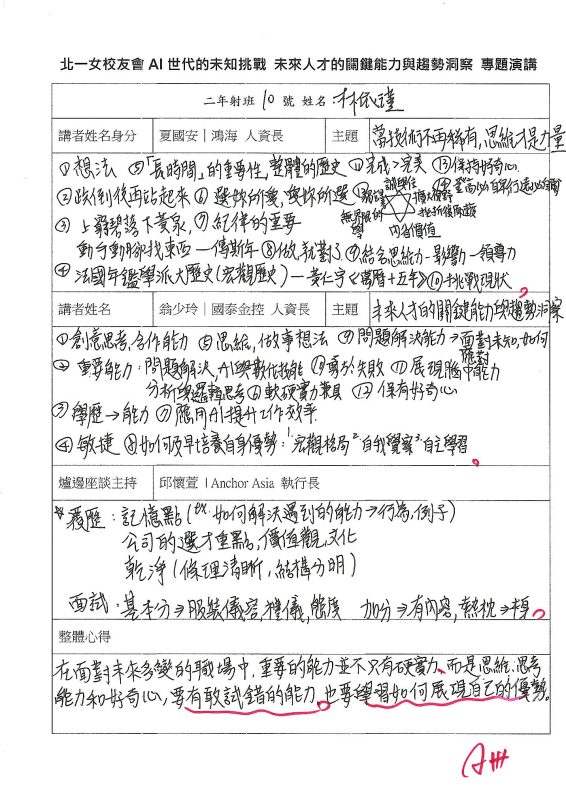 北一女校友會 AI 世代的未知挑戰 未來人才的關鍵能力與趨勢洞察 專題演講
二年射班 10 號 姓名 林依瑾
講者姓名身分 夏國安｜鴻海 人資長 主題 當技術不再稀有,思維才是力量
①想法 ⑤「長時間」的重要性,整體的歷史 ⑪完成>完美 ⑬保持好奇心
②跌倒後再站起來 ⑥選妳所愛,愛妳所選
③上窮碧落下黃泉, ⑦紀律的重要
動手動腳找東西—傅斯年 ⑧做就對了 ⑨結合思維力—影響力—領導力
④法國年鑑學派大歷史(宏觀歷史)—黃仁宇《萬曆十五年》 ⑩挑戰現狀
誠與信
內省價值
講者姓名 翁少玲｜國泰金控 人資長 主題 未來人才的關鍵能力與趨勢洞察
①創意思考,合作能力 ⑤思維,做事想法 ⑨問題解決能力→面對未知,如何應對
②重要能力:問題解決,AI與數位技能 ⑩勇於失敗 ⑪展現腦中能力
分析與邏輯思考 ⑥軟硬實力兼具 ⑫保有好奇心
③學歷→能力 ⑦應用AI提升工作效率
④敏捷 ⑧如何及早培養自身優勢:¹宏觀格局²自我覺察³自主學習
爐邊座談主持 邱懷萱｜Anchor Asia 執行長
*履歷:記憶點(ex.如何解決遇到的能力→行為,例子)
公司的選才重點,價值觀,文化
乾淨(條理清晰,結構分明)
面試:基本分⇒服裝儀容,禮儀,態度 加分⇒有內容,熱忱→
整體心得
在面對未來多變的職場中,重要的能力並不只有硬實力、而是思維、思考
能力和好奇心,要有敢試錯的能力。也要學習如何展現自己的優勢。
A+++